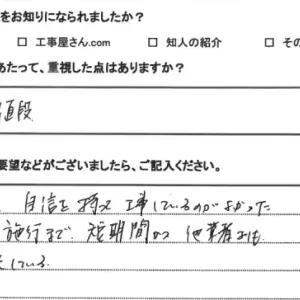 をお知りになられましたか？
□ 工事屋さん.com □ 知人の紹介 □ その
あたって、重視した点はありますか？
値段
要望などがございましたら、ご記入ください。
自信を持って 工事しているのがよかった
施行まで 短期間かつ
している